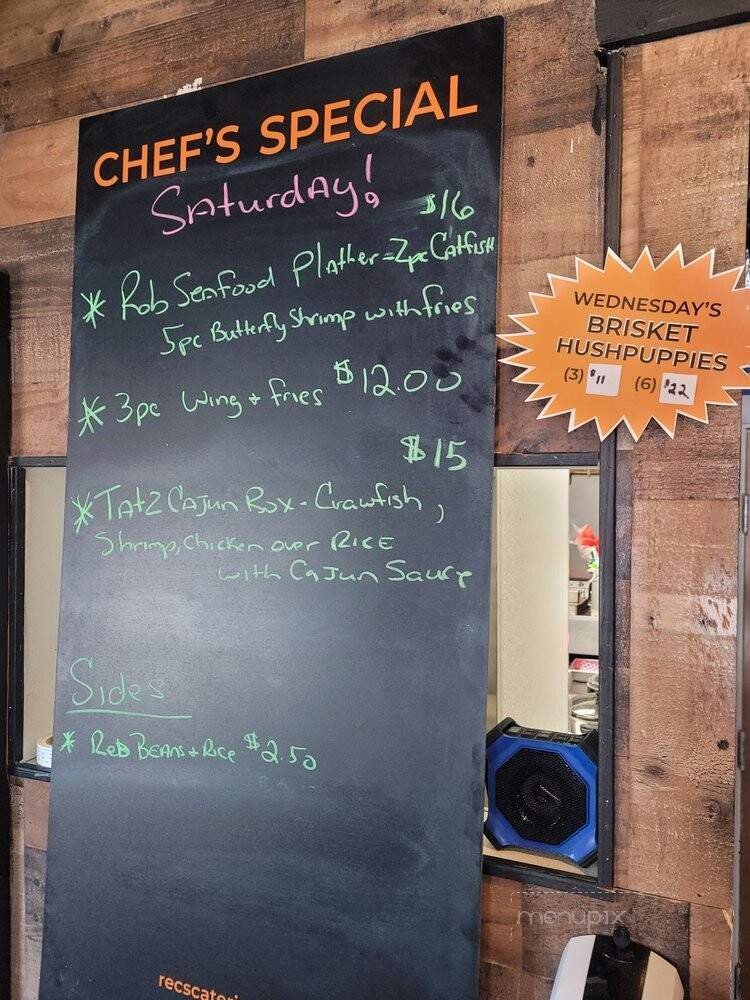 CHEF'S SPECIAL
Saturday!
$16
* Rob Seafood Platter = 2pc Catfish
5pc Butterfly Shrimp with fries
* 3pc Wing + fries $12.00
$15
* Tatz Cajun Box - Crawfish,
Shrimp, Chicken over Rice
with Cajun Sauce
Sides
* Red Beans + Rice $2.50
WEDNESDAY'S
BRISKET
HUSHPUPPIES
(3) $11 (6) $22
menupix
recscateri